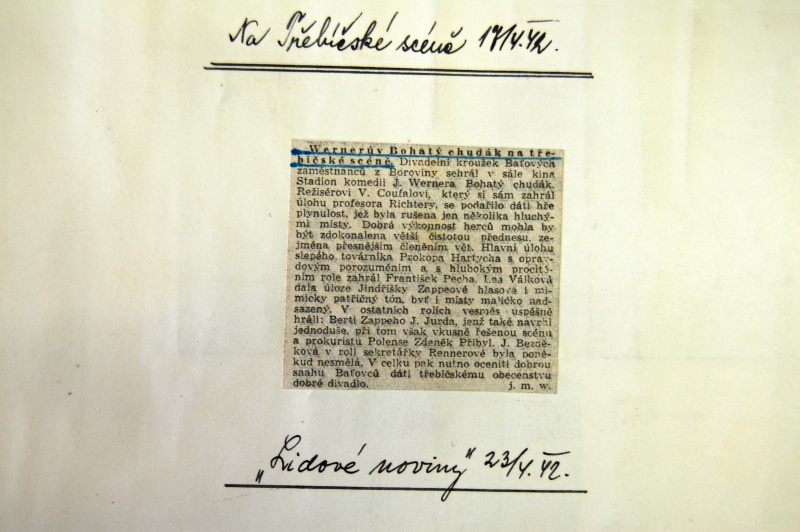 Na Třebíčské scéně 17/4.42.
Wernerův Bohatý chudák na tře-
bíčské scéně. Divadelní kroužek Baťových
zaměstnanců z Boroviny sehrál v sále kina
Stadion komedii J. Wernera Bohatý chudák.
Režisérovi V. Coufalovi, který si sám zahrál
úlohu profesora Richtery, se podařilo dáti hře
plynulost, jež byla rušena jen několika hluchý-
mi místy. Dobrá výkonnost herců mohla by
být zdokonalena větší čistotou přednesu, ze-
jména přesnějším členěním vět. Hlavní úlohu
slepého továrníka Prokopa Hartycha s oprav-
dovým porozuměním a s hlubokým procítě-
ním role zahrál František Pecha. Lea Válková
dala úloze Jindřišky Zappeové hlasově i mi-
micky patřičný tón, byť i místy maličko nad-
sazený. V ostatních rolích vesměs úspěšně
hráli: Berti Zappeho J. Jurda, jenž také navrhl
jednoduše, při tom však vkusně řešenou scénu
a prokuristu Polense Zdeněk Přibyl. J. Bezdě-
ková v roli sekretářky Rennerové byla poně-
kud nesmělá. V celku pak nutno oceniti dobrou
snahu Baťovců dáti třebíčskému obecenstvu
dobré divadlo. j. m. w.
„Lidové noviny" 23/4.42.